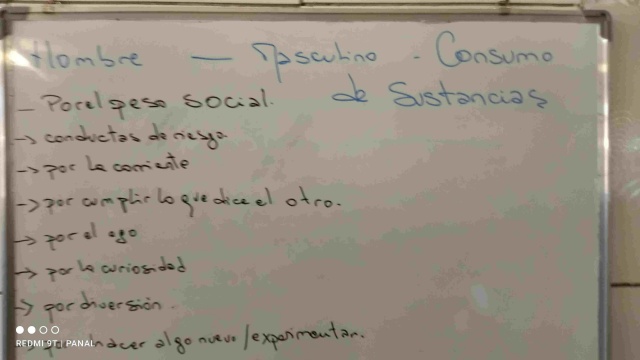 Hombre — Masculino - Consumo
de Sustancias
- Por el peso social.
→ conductas de riesgo
→ por la corriente
→ por cumplir lo que dice el otro.
→ por el ego
→ por la curiosidad
→ por diversión.
→ por hacer algo nuevo/experimentar.
REDMI 9T | PANAL